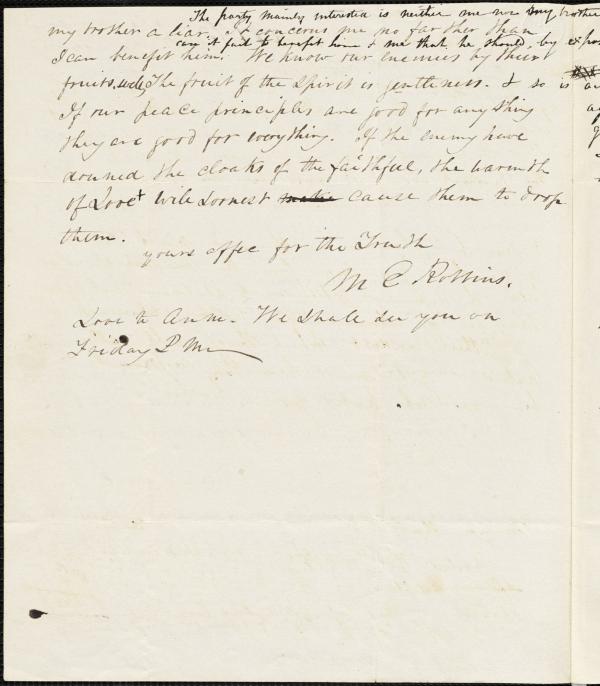 The party mainly interested is neither me nor my brother
my brother a liar. It concerns me no farther than
can it fail to benefit him & me that he should, by
I can benefit him. We know our enemies by their
fruits. The fruit of the Spirit is gentleness. & so is
If our peace principles are good for anything
they are good for everything. If the enemy have
donned the cloaks of the faithful, the warmth
of Love will soonest make cause them to drop
them.
yours affec for the Truth
M E Robbins.
Love to Anne. We shall see you on
Friday P M